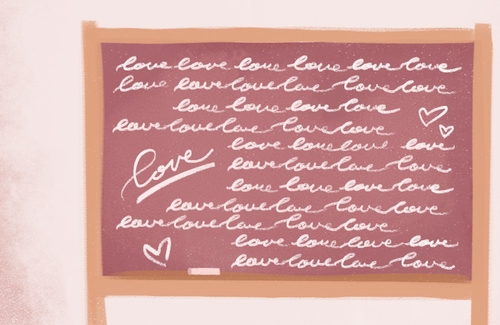 love love love love love
love love love love love love
love love love love
love love love love love love
love love love love
love
love love love love love
love love love love
love love love love love love
love love love love love love
love love love love
love love love love love